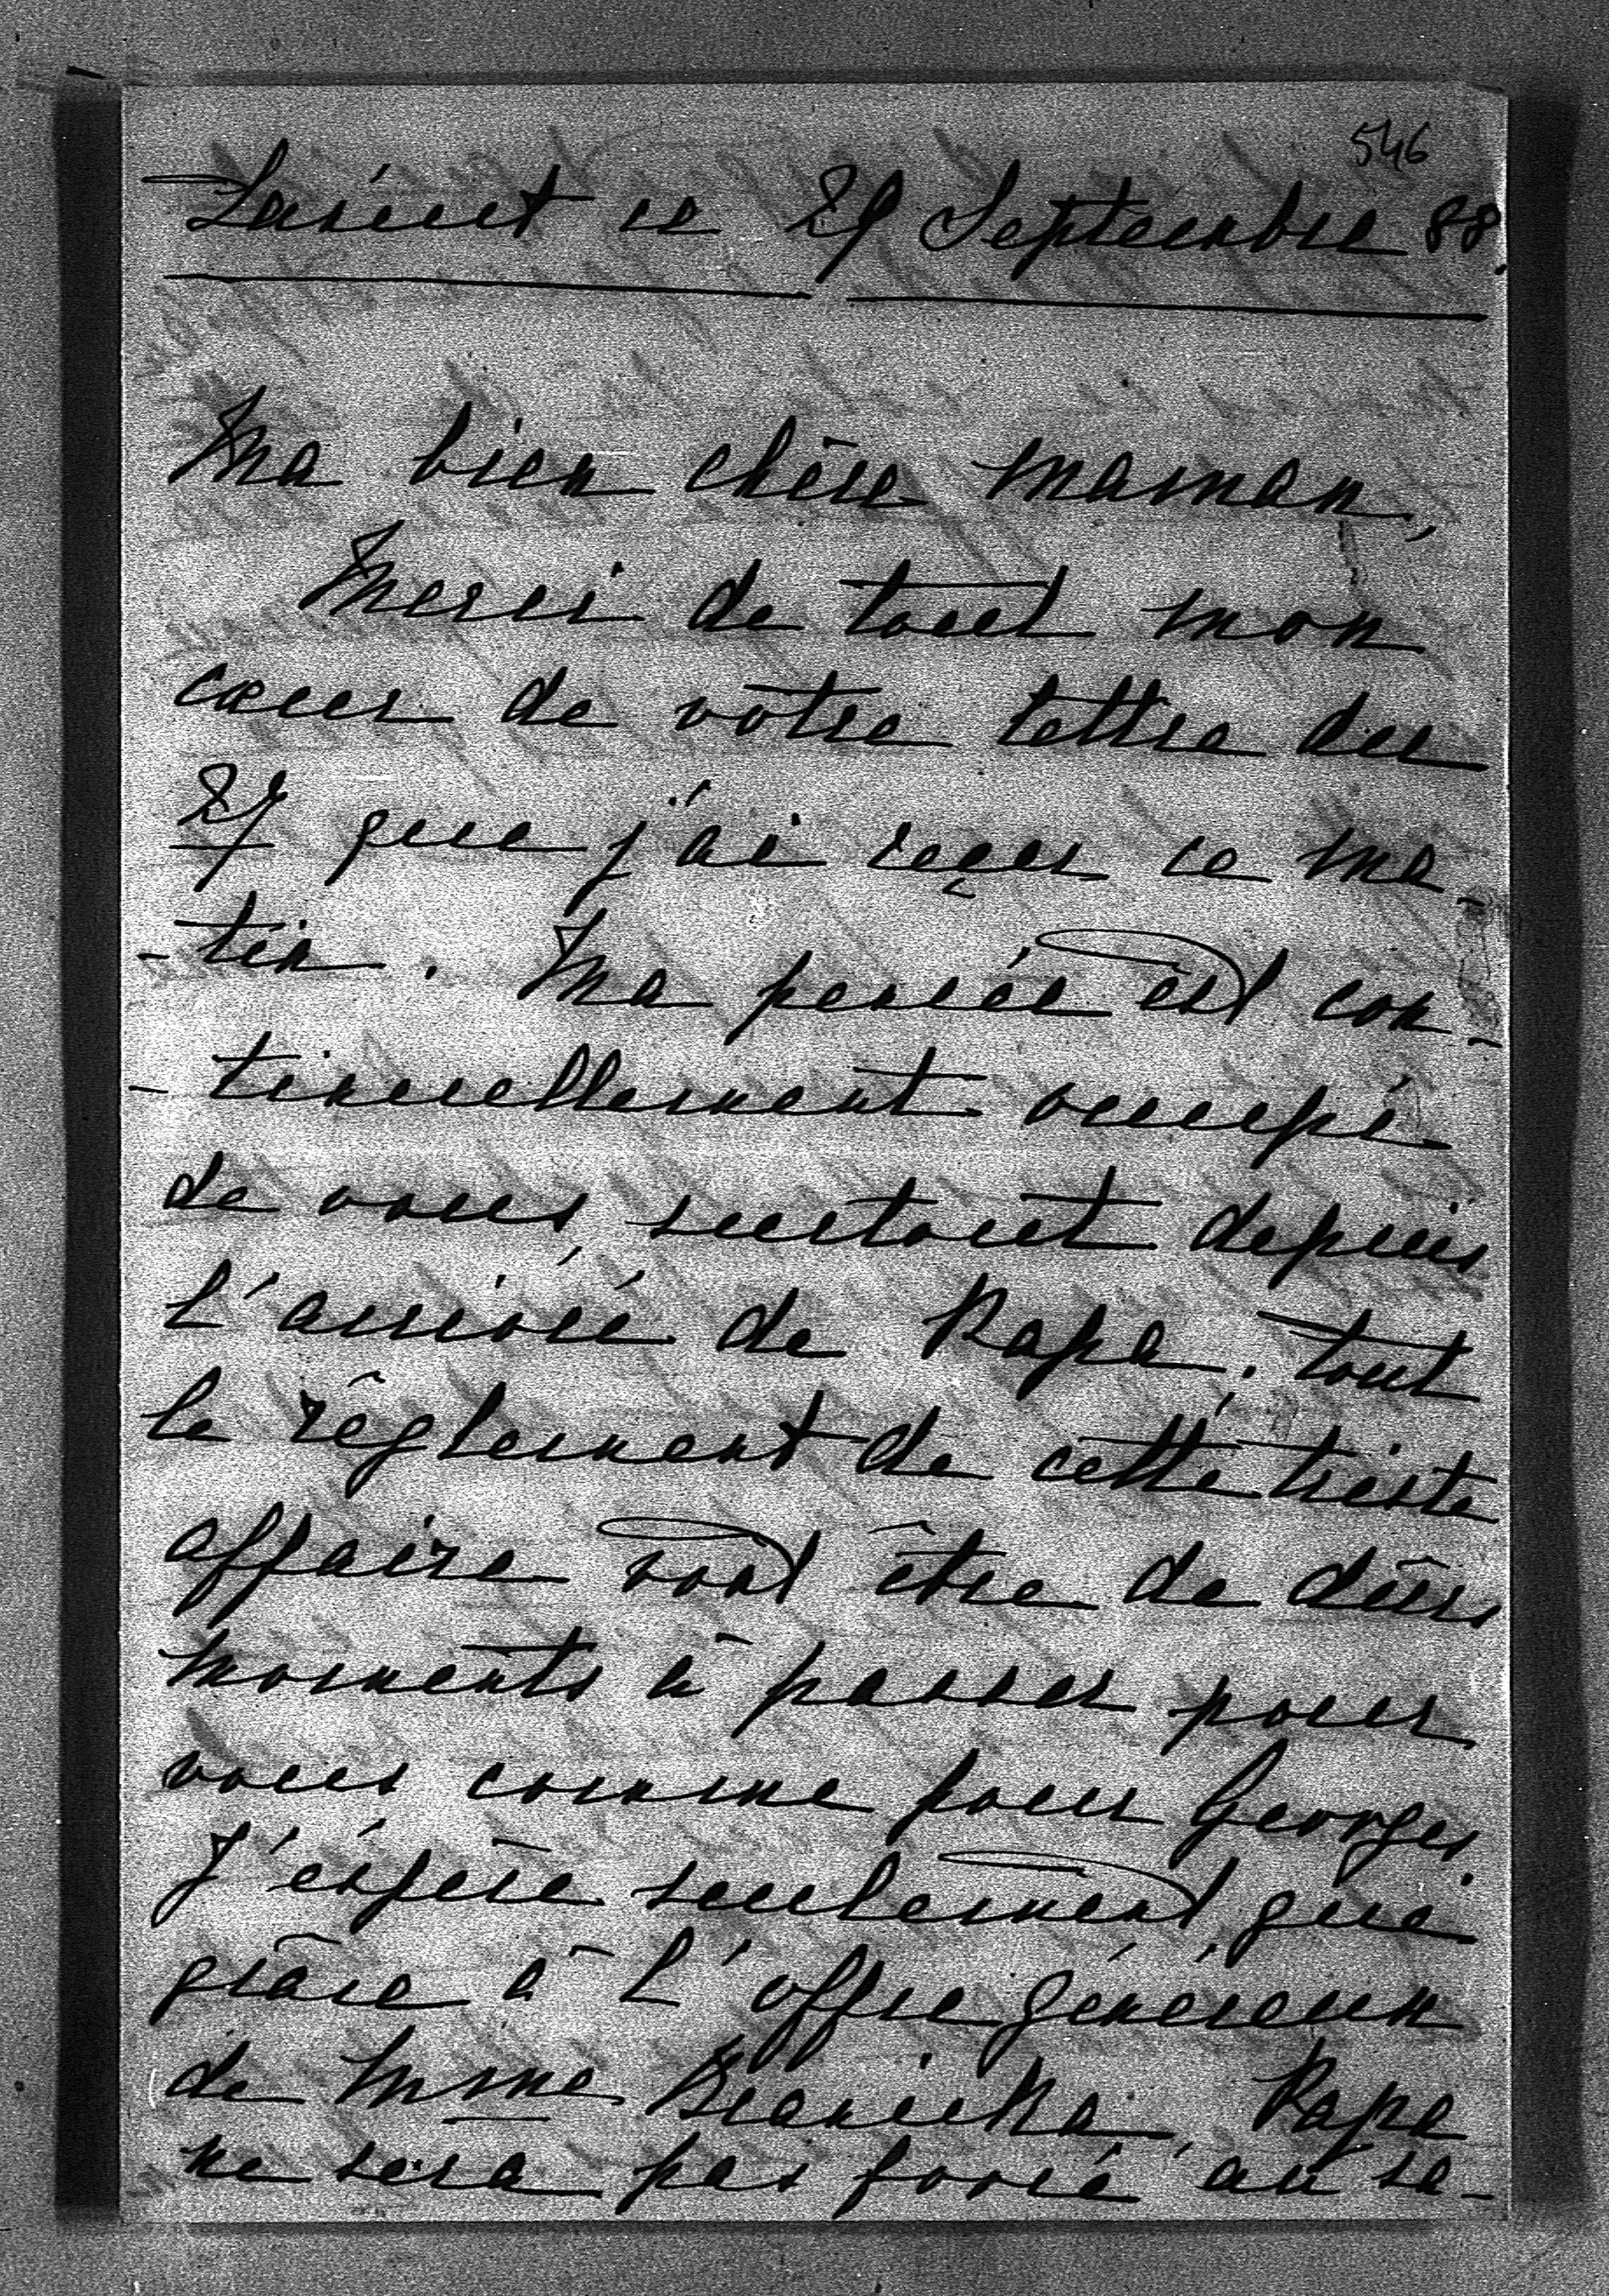 546
Lanient ce 29 Septembre 88.
Ma bien chère Maman,
Merci de tout mon
cœur de votre lettre du
27 que j'ai reçu ce ma-
-tin. Ma pensée est con-
-tinuellement occupé
de vous, surtout depuis
l'arrivé de Papa; tout
le rêglement de cette triste
affaire vont être de dûrs
moments à passer pour
vous comme pour Georges.
J'éspère seulement que
grâce à l'offre généreux
de Mme Papa
ne sera pas forcé au sa-